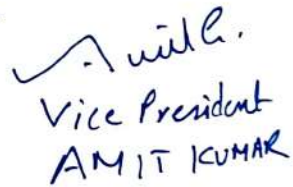 Vice President
AMIT KUMAR